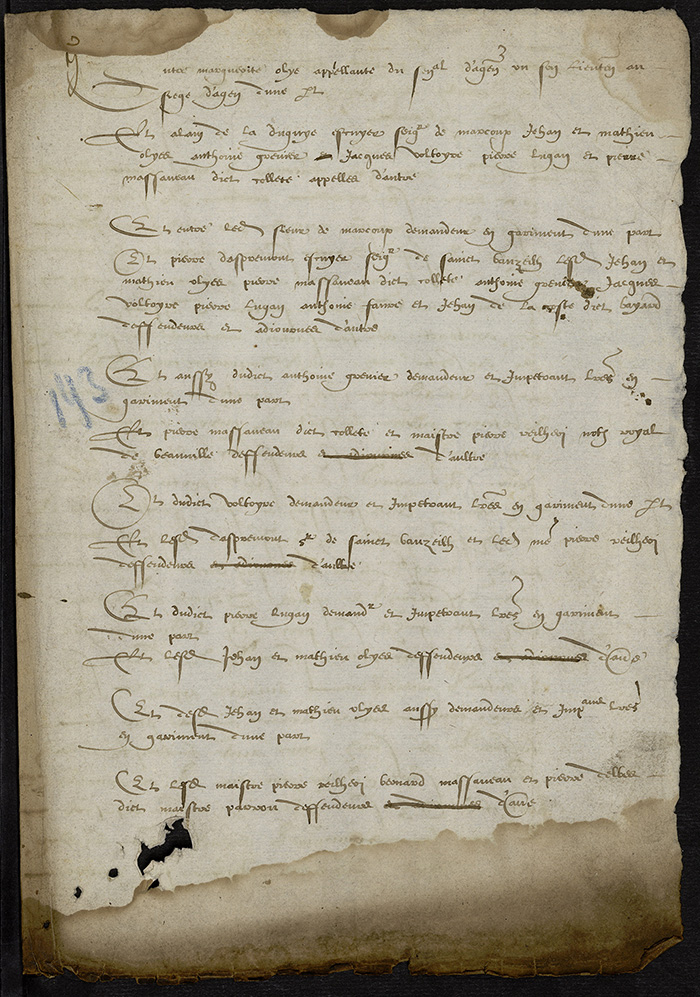 Entre marguerite olye appellante du sen.al d'agen ou son lieuten au
siege d'agen d'une p.t
Et alain de la duguye escuyer seig.r de marcoup Jehan et mathieu
olyes anthoine grenier et Jacques voltoyre pierre lugan et pierre
massaneau dict collete appelles d'autre
Et entre led. sieur de marcoup demandeur en gariment d'une part
Et pierre daspremont escuyer seig.r de sainct vauzeilh lesd. Jehan et
mathieu olyes pierre massaneau dict collete anthoine grenier Jacques
voltoyre pierre lugan anthoine faure et Jehan de la coste dict bayard
deffendeurs et adiournes d'autre
Et aussy dudict anthoine grenier demandeur et Impetrant l.res en
gariment d'une part
Et pierre massaneau dict collete et maistre pierre veilheri not.e royal
de beauville deffendeurs et adiournes d'aultre
Et dudict voltoyre demandeur et Impetrant l.res en gariment d'une p.t
Et lesd. daspremont s.r de sainct vauzeilh et led. m.e pierre veilheri
deffendeurs et adiournes d'aultre
Et dudict pierre lugan demand.r et Impetrant l.res en gariment
d'une part
Et lesd. Jehan et mathieu olyes deffendeurs et adiournes d'au.e
Et desd. Jehan et mathieu olyes aussy demandeurs et Imp.ans l.res
en gariment d'une part
Et lesd. maistre pierre veilheri bernard massaneau et pierre delbes
dict maistre parrou deffendeurs et adiournes d'au.e
193